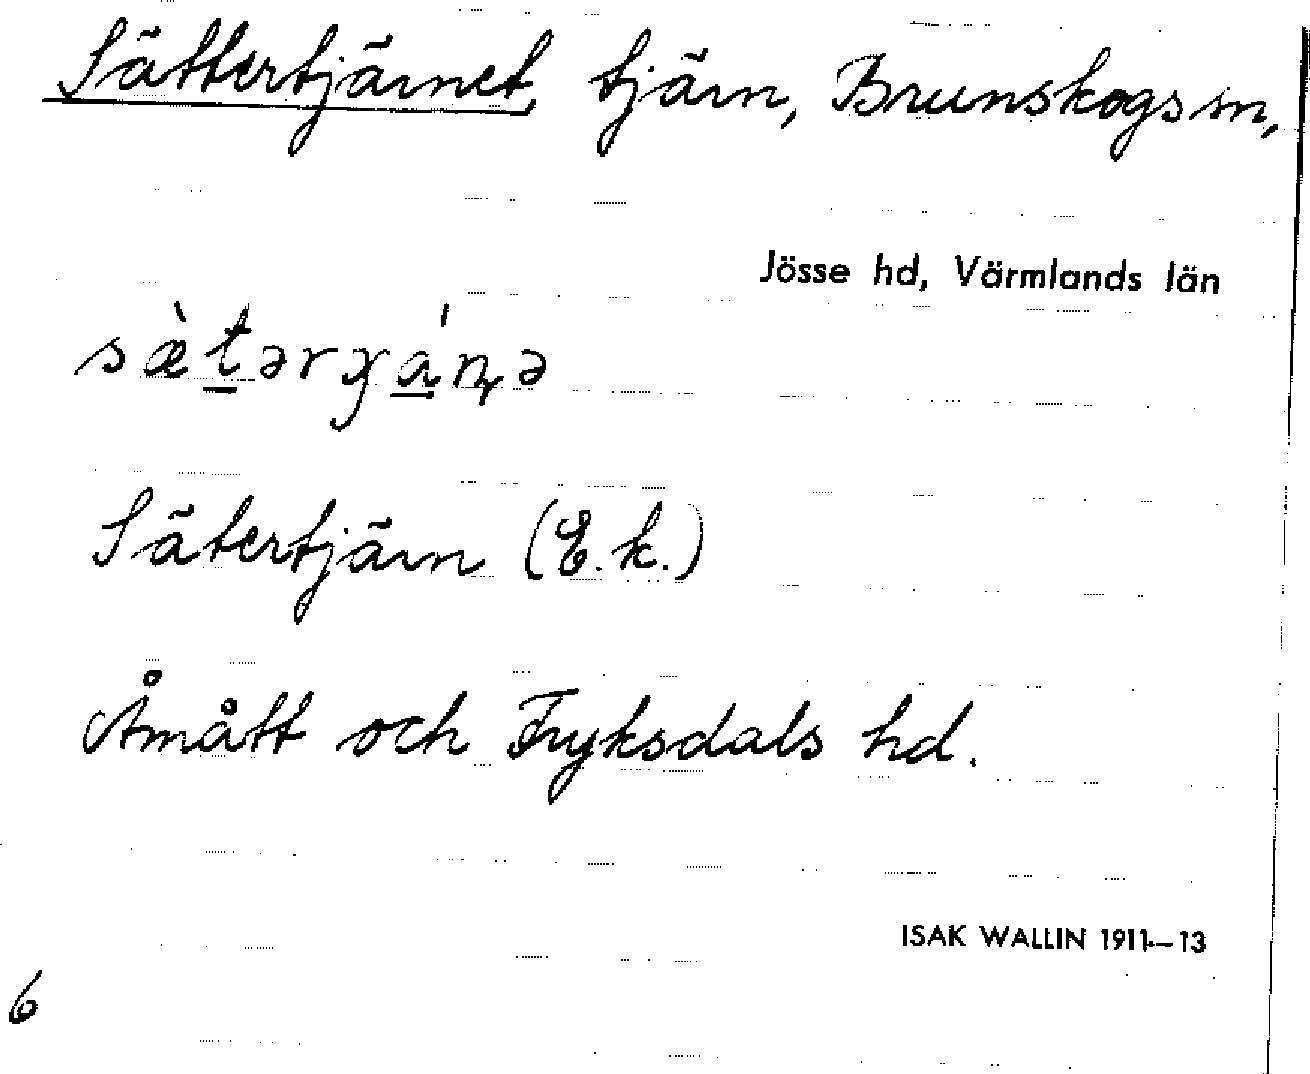 Sättertjärnet, tjärn, Brunskogs sn,
Jösse hd, Värmlands län
sæ̀tərɣánə
Sätertjärn (E.k.)
Åmått och Fryksdals hd.
ISAK WALLIN 1911—13
6